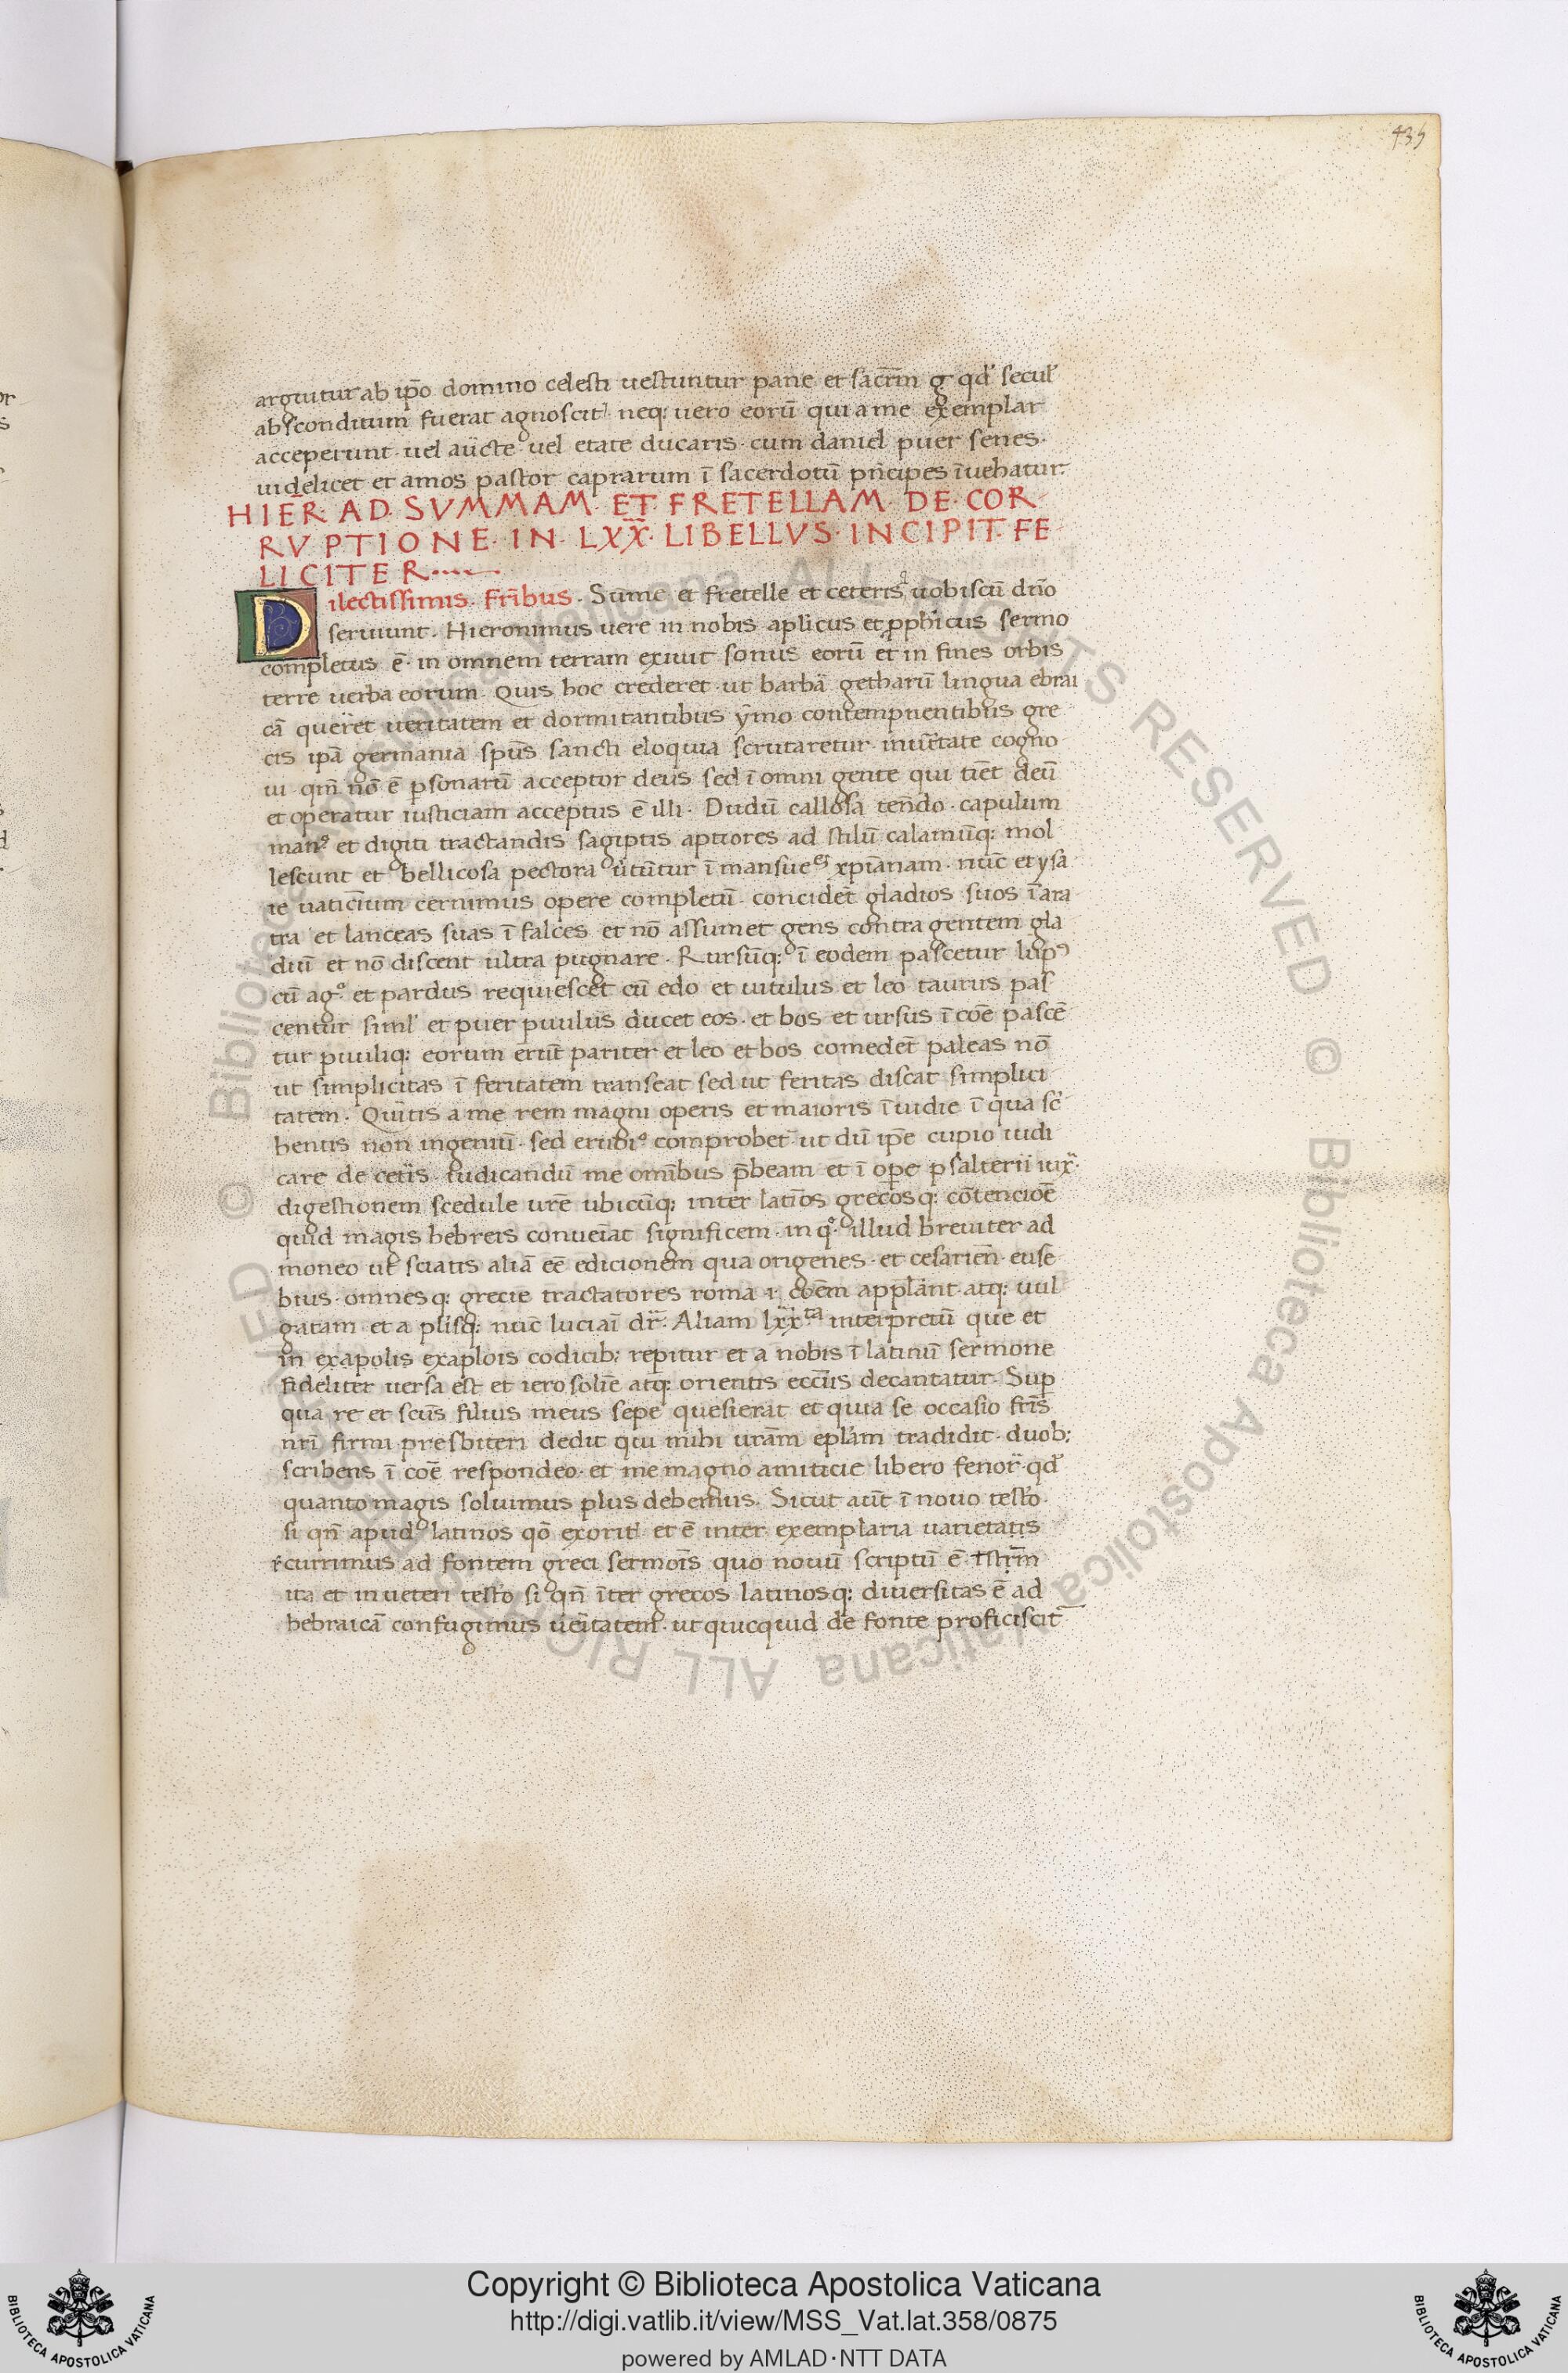 435
arguitur ab ip̄o domino celesti uestuntur pane et sacr̄m g̊ qd' secul'
absconditum fuerat agnoscit' neq; uero eorū qui a me exemplar
acceperunt uel aücte uel etate ducaris. cum daniel puer senes.
uidelicet et amos pastor caprarum ī sacerdotū pn̄cipes īuehatur
HIER̄ AD SVMMAM ET FRETELLAM DE COR
RVPTIONE IN LXX̄ LIBELLVS INCIPIT FE
LICITER
Dilectissimis. Fr̄ibus. Sūme et fretelle et ceteris q̇ uobiscū dn̄o
seruiunt. Hieronimus uere in nobis aplicus et pphicus sermo
completus ē. in omnem terram exiuit sonus eorū et in fines orbis
terre uerba eorum. Quis hoc crederet ut barbä getharū lingua ebrai
cā queret ueritatem et dormitantibus ymo contempnentibus gre
cis ipā germania spūs sancti eloquia scrutaretur. inuītate cogno
ui qm̄ nō ē psonarū acceptor deus sed ī omni gente qui tiēt deū
et operatur iusticiam acceptus ē illi. Dudū callosa ten̄do capulum
manꝰ et digiti tractandis sagiptis aptiores ad stilū calamūq; mol
lescunt et bellicosa pectora ūtūtur ī mansue xpīanam. nūc et ysa
ie uaticīum cernimus opere completū. concidēt gladios suos ī ara
tra et lanceas suas ī falces et nō assumet gens contra gentem gla
diū et nō discent ultra pugnare. Rursūq; ī eodem pascetur lupꝰ
cū ag°. et pardus requiescet cū edo et uitulus et leo taurus pas
centur siml' et puer puulus ducet eos. et bos et ursus ī coē pascē
tur puuliq; eorum erūt pariter et leo et bos comedēt paleas nō
ut simplicitas ī feritatem transeat sed ut feritas discat simplici
tatem. Quitis a me rem magni operis et maioris īuidie ī qua sc'
bentis non ingeniū. sed erudi° comprobet. ut dū ip̄e cupio iudi
care de cet̄is. iudicandū me omībus p̄beam et ī ope psalterii iux̄.
digestionem scedule ur̄e ubicūq; inter latīos grecosq; cōtencioē
quid magis hebreis conueīat significem. in q° illud breuiter ad
moneo ut sciatis aliā eē edicionem qua origenes. et cesarien̄. euse
bius. omnesq; grecie tractatores roma .i. coēm applānt. atq; uul
gatam et a plisq; nūc luciaī dr̄. Aliam lxx̄ta interpretū que et
in exapolis exaplois codicib; repitur et a nobis ī latinū sermone
fideliter uersa est et ierosolīe atq; orientis eccīis decantatur. Sup
qua re et scūs filius meus sepe quesierat et quia se occasio fr̄is
nr̄i firmi presbiteri dedit qui mihi urām eplām tradidit. duob;
scribens ī coē respondeo. et me magno amiticie libero fenor̄. qd'
quanto magis soluimus plus debemus. Sicut aūt ī nouo testo.
si qn̄ apud latinos qō exorit' et ē inter exemplaria uarietatis
r̄currimus ad fontem greci sermoīs quo nouū scriptū ē tstrm̄
ita et in ueteri testo si qn̄ īter grecos latinosq; diuersitas ē ad
hebraicā confugimus uēitatem. ut quicquid de fonte proficiscit̄
Copyright © Biblioteca Apostolica Vaticana
http://digi.vatlib.it/view/MSS_Vat.lat.358/0875
powered by AMLAD·NTT DATA
BIBLIOTECA APOSTOLICA VATICANA
BIBLIOTECA APOSTOLICA VATICANA
© Biblioteca Apostolica Vaticana ALL RIGHTS RESERVED © Biblioteca Apostolica Vaticana ALL RIGHTS RESERVED